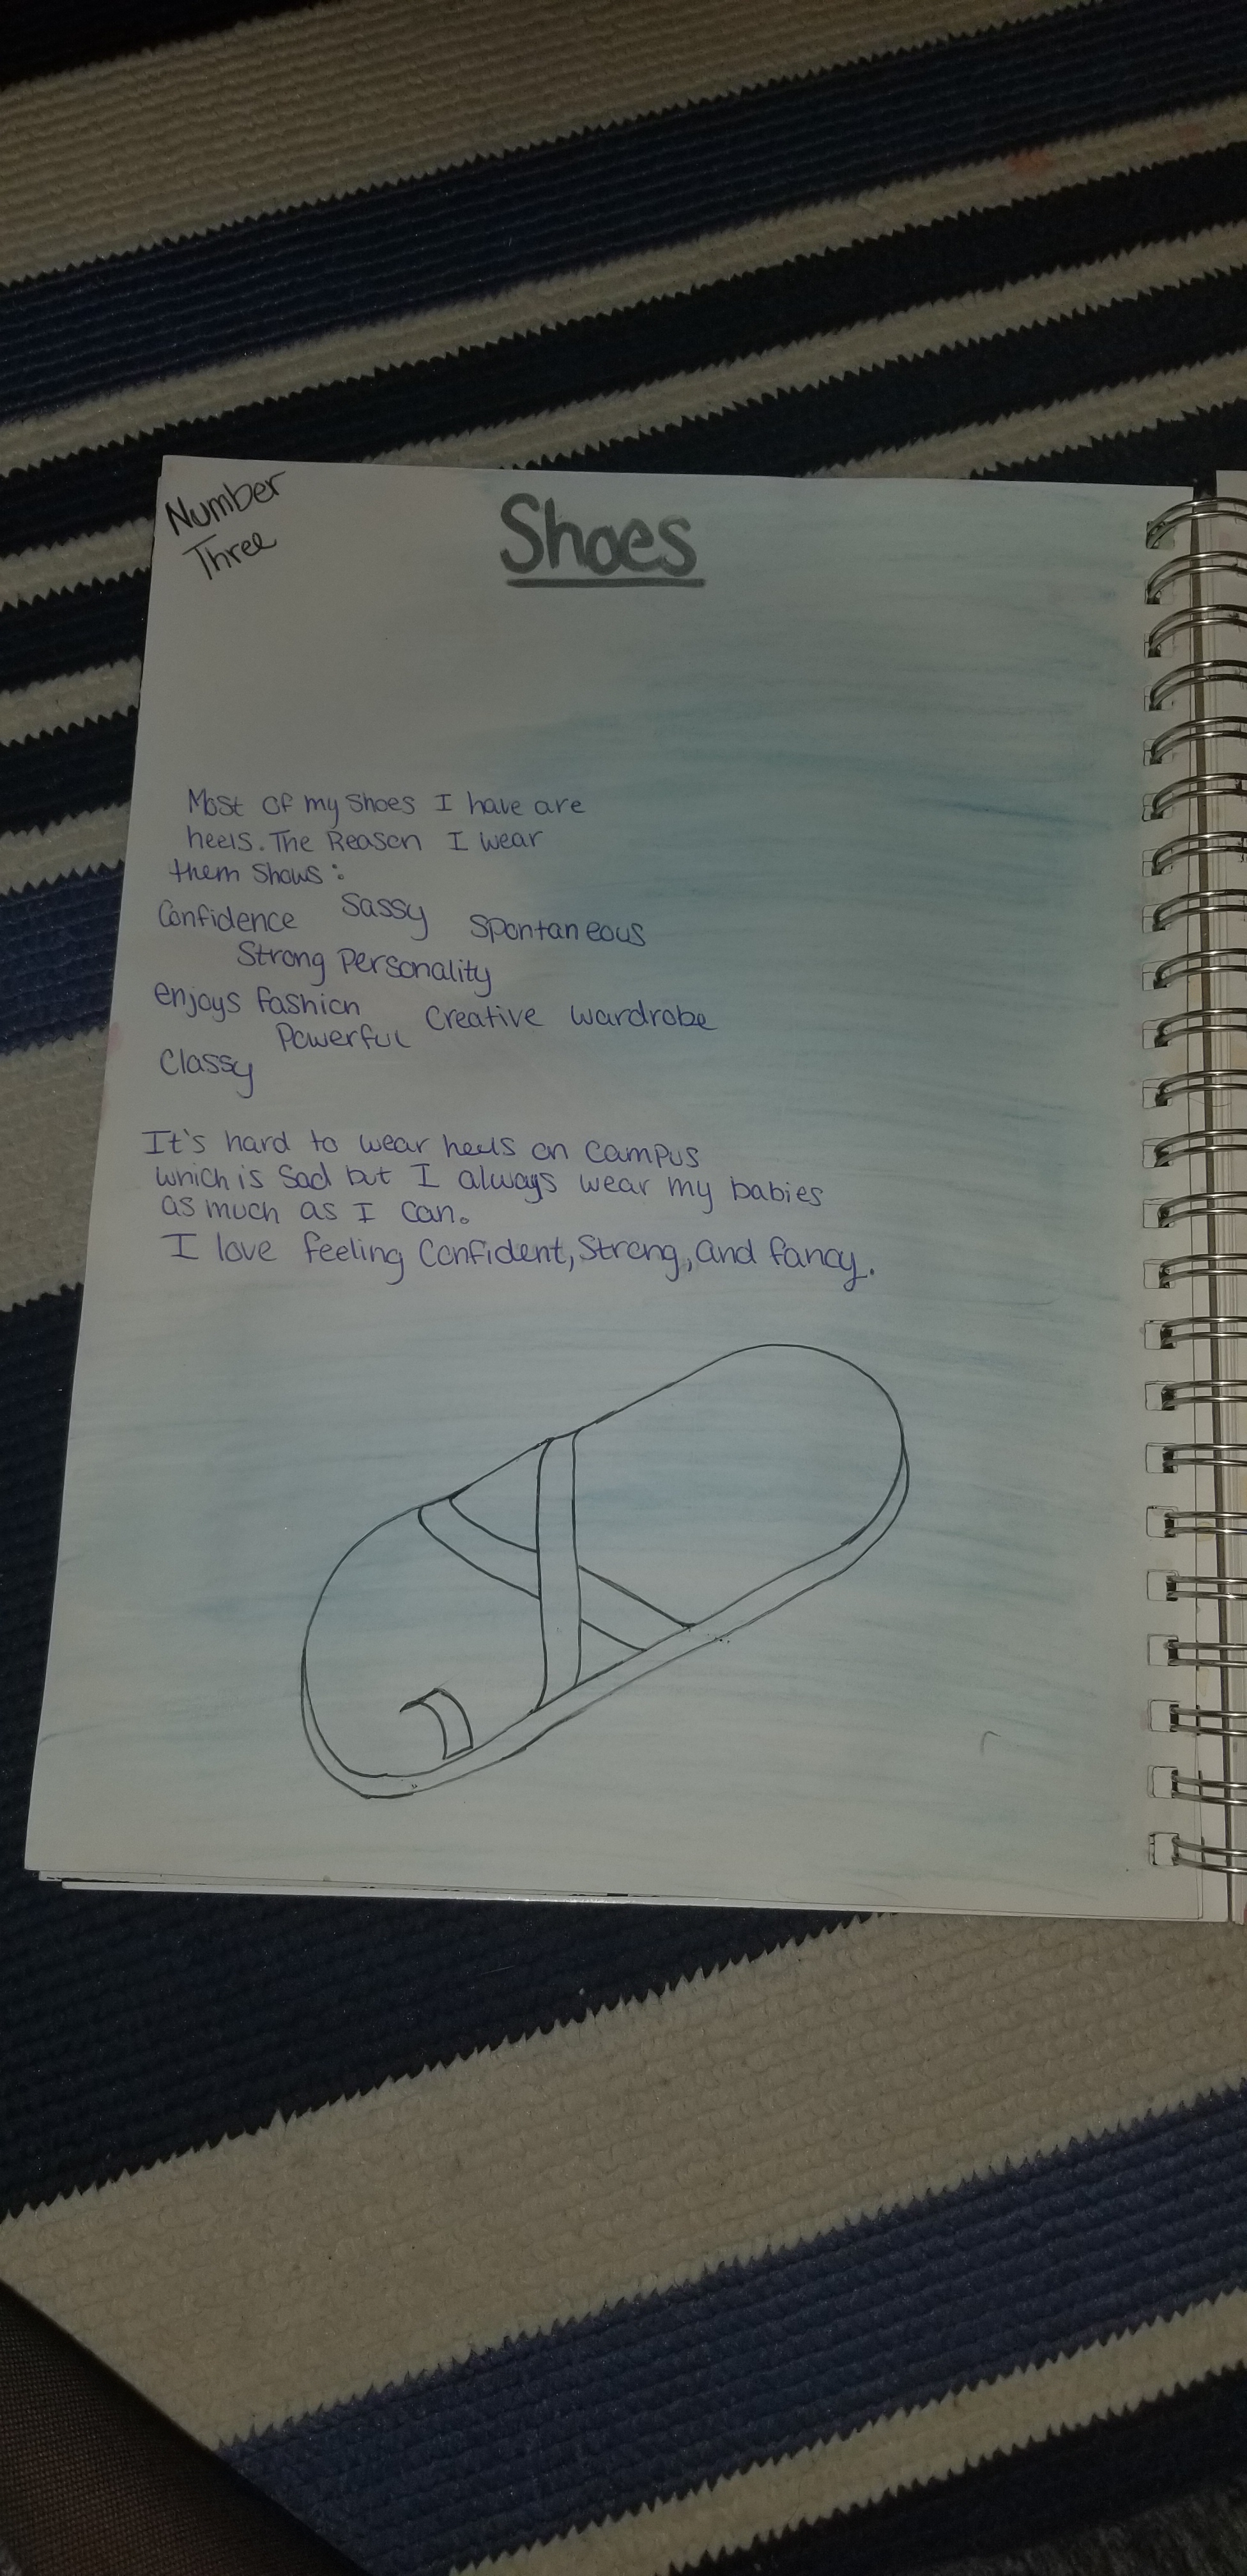 Number
Three
Shoes
Most of my shoes I have are
heels. The Reason I wear
them shows:
Confidence Sassy Spontaneous
Strong Personality
enjoys fashion Creative wardrobe
Powerful
Classy
It's hard to wear heels on campus
which is sad but I always wear my babies
as much as I can.
I love feeling Confident, Strong, and fancy.